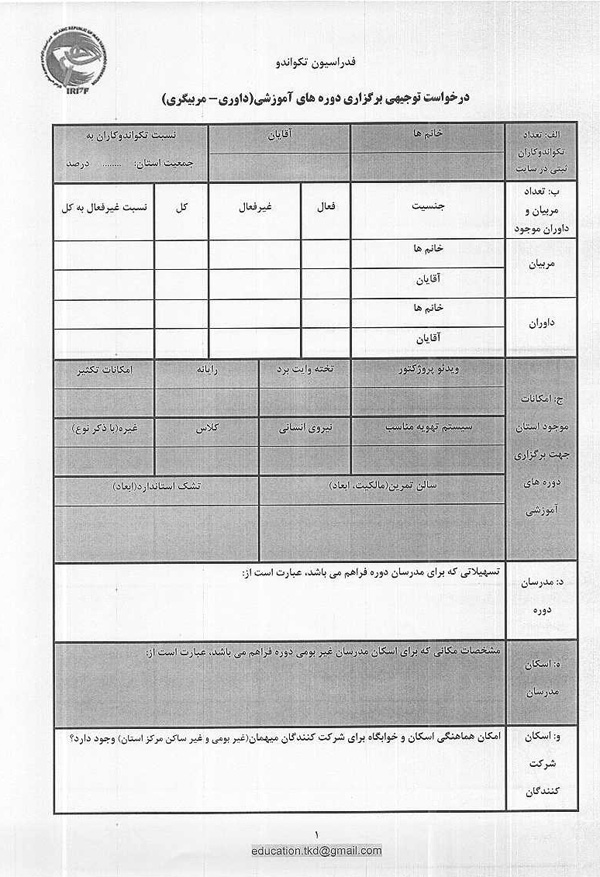 IRITF
فدراسیون تکواندو
درخواست توجیهی برگزاری دوره های آموزشی(داوری- مربیگری)
الف: تعداد
تکواندوکاران
ثبتی در سایت
خانم ها
آقایان
نسبت تکواندوکاران به
جمعیت استان: ........ درصد
ب: تعداد
مربیان و
داوران موجود
جنسیت
فعال
غیرفعال
کل
نسبت غیرفعال به کل
مربیان
خانم ها
آقایان
داوران
خانم ها
آقایان
ج: امکانات
موجود استان
جهت برگزاری
دوره های
آموزشی
ویدئو پروژکتور
تخته وایت برد
رایانه
امکانات تکثیر
سیستم تهویه مناسب
نیروی انسانی
کلاس
غیره(با ذکر نوع)
سالن تمرین(مالکیت، ابعاد)
تشک استاندارد(ابعاد)
د: مدرسان
دوره
تسهیلاتی که برای مدرسان دوره فراهم می باشد، عبارت است از:
ه: اسکان
مدرسان
مشخصات مکانی که برای اسکان مدرسان غیر بومی دوره فراهم می باشد، عبارت است از:
و: اسکان
شرکت
کنندگان
امکان هماهنگی اسکان و خوابگاه برای شرکت کنندگان میهمان(غیر بومی و غیر ساکن مرکز استان) وجود دارد؟
۱
education.tkd@gmail.com